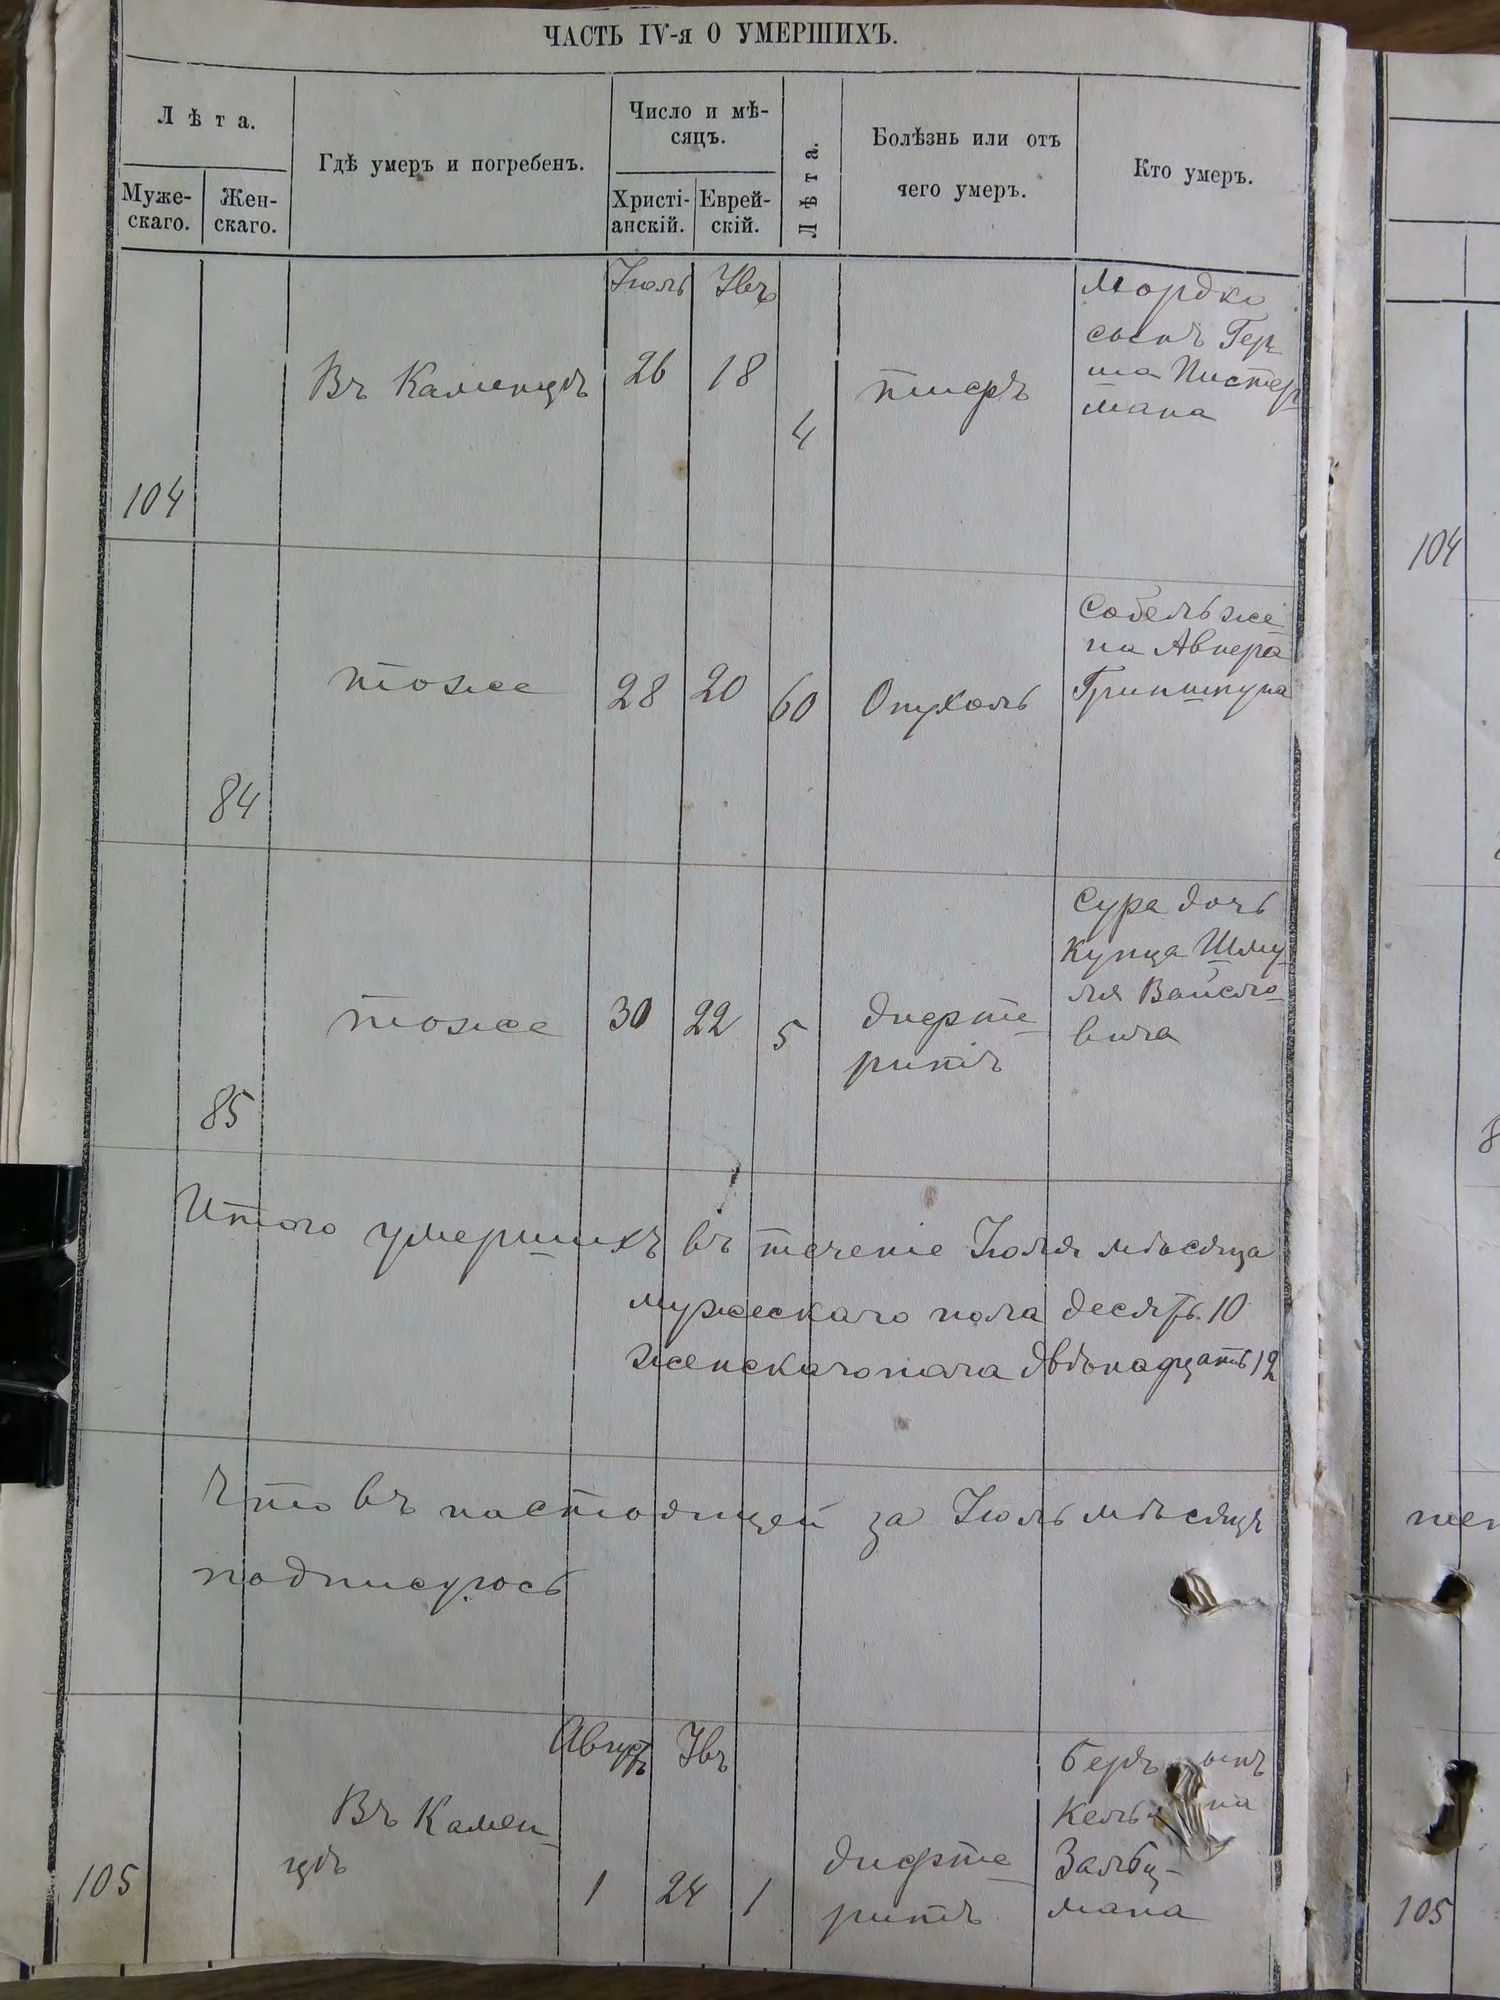 ЧАСТЬ IV-я О УМЕРШИХЪ.
Лѣта.
Муже-
скаго.
Жен-
скаго.
Гдѣ умеръ и погребенъ.
Число и мѣ-
сяцъ.
Христі-
анскій.
Еврей-
скій.
Лѣта.
Болѣзнь или отъ
чего умеръ.
Кто умеръ.
Іюль
104
Въ Каменцѣ
26
18
4
тифъ
Мордко
сынъ Гер
ша Пистер
мана
84
тоже
28
20
60
Опухоль
Собель же
на Авнера
Гринштупа
85
тоже
30
22
5
дифте
ритъ
Сура дочь
купца Шму
ля Вайсло
вича
Итого умершихъ въ теченіе Іюля мѣсяца
мужескаго пола десять 10
женскаго пола двѣнадцать 12
Что въ настоящей за Іюль мѣсяцъ
подписуюсь
Августъ
105
Въ Камен
цѣ
1
24
1
дифте
ритъ
Беръ
Зальц-
мана
104
105